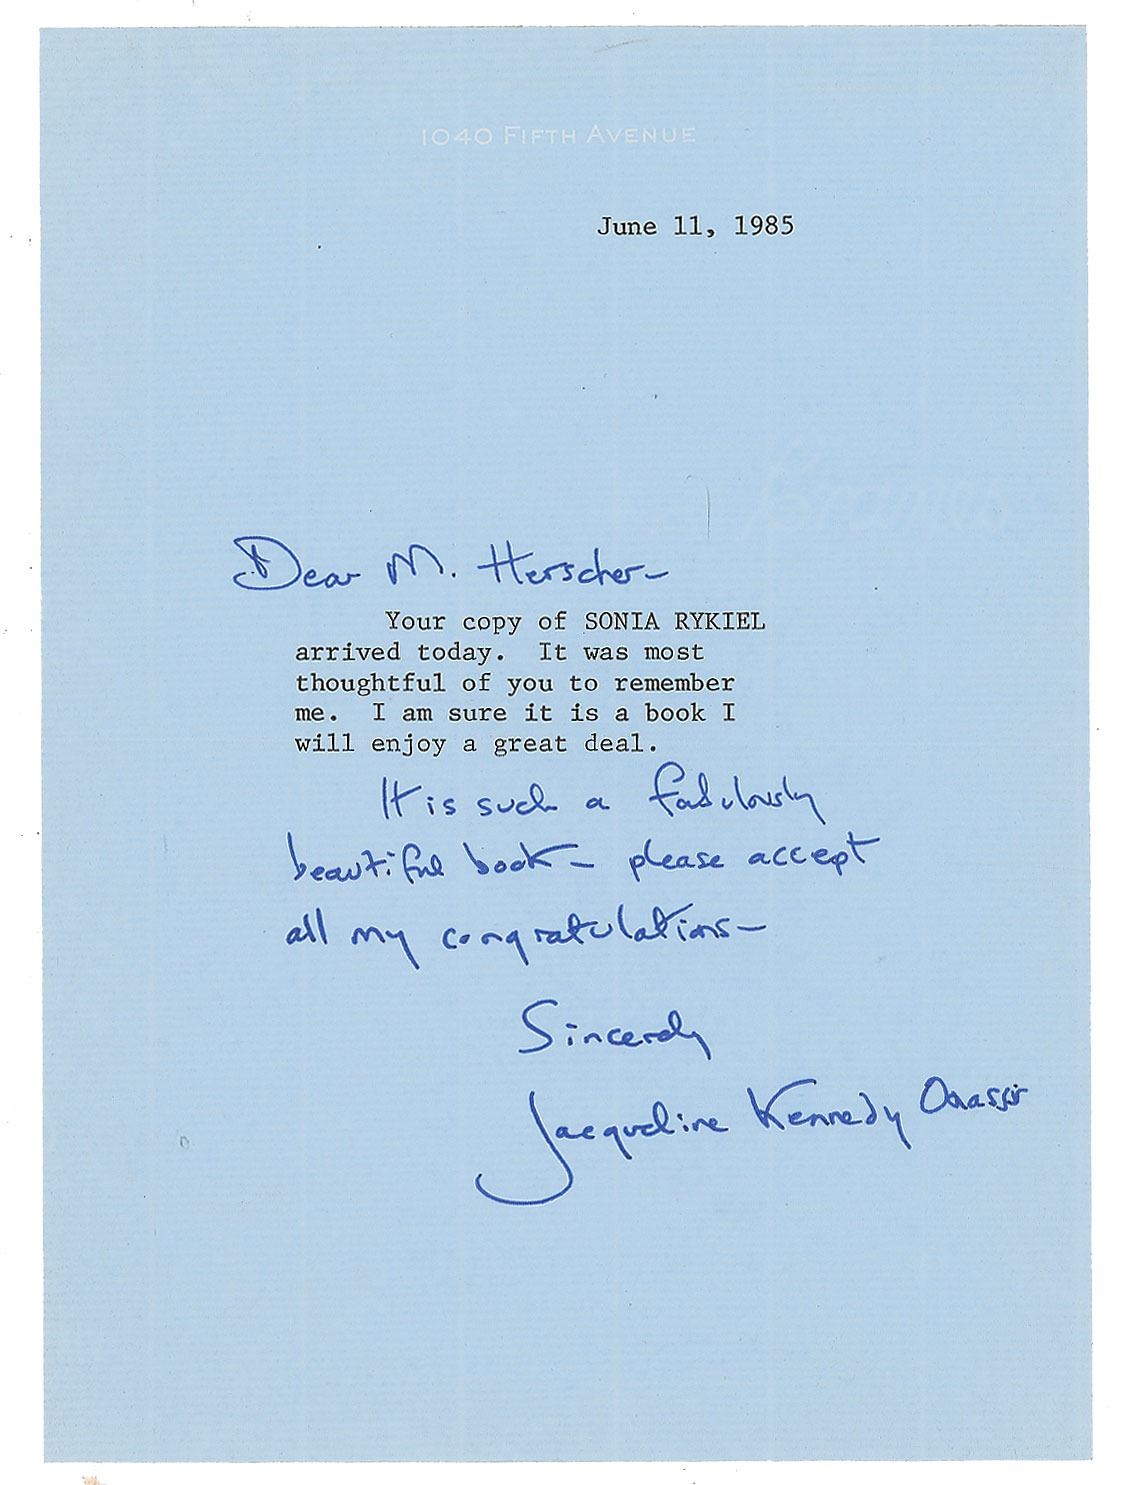 1040 FIFTH AVENUE
June 11, 1985
Dear M. Herscher-
Your copy of SONIA RYKIEL
arrived today.  It was most
thoughtful of you to remember
me.  I am sure it is a book I
will enjoy a great deal.
It is such a fabulously
beautiful book - please accept
all my congratulations -
Sincerely
Jacqueline Kennedy Onassis